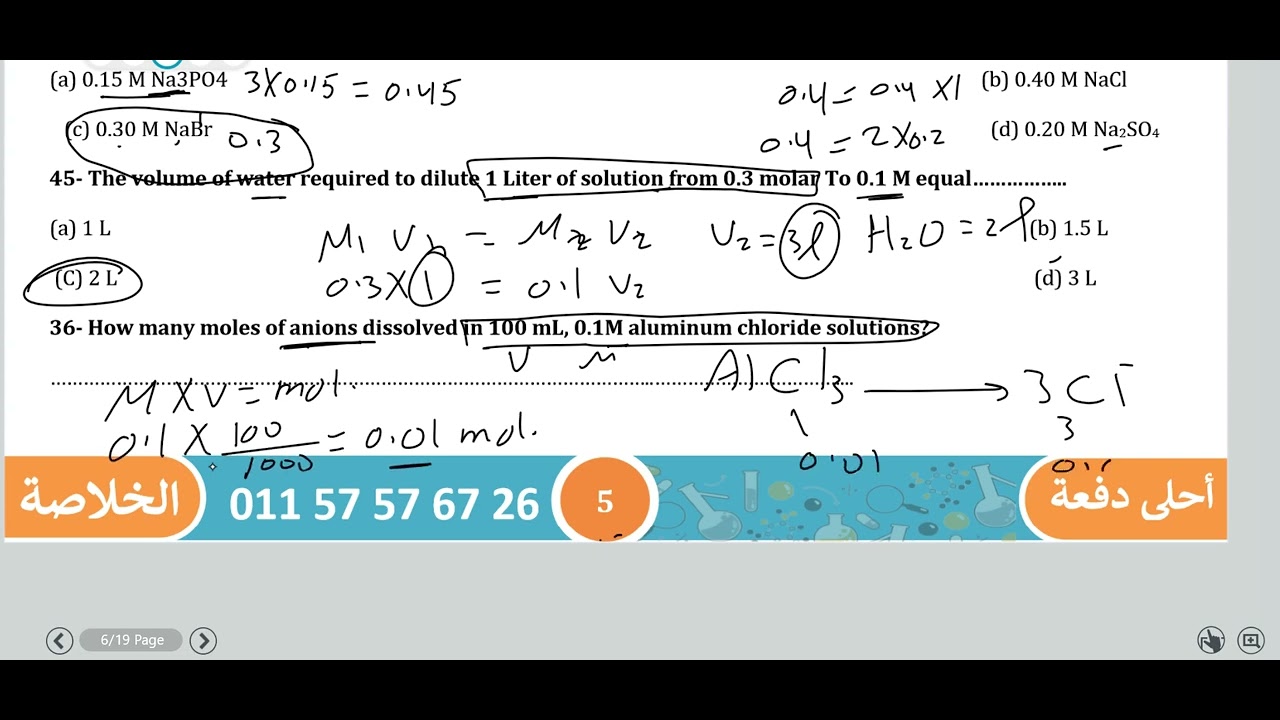 (a) 0.15 M Na3PO4 3X0.15 = 0.45 0.4 = 0.4 X1 (b) 0.40 M NaCl
(c) 0.30 M NaBr 0.3 0.4 = 2X0.2 (d) 0.20 M Na₂SO₄
45- The volume of water required to dilute 1 Liter of solution from 0.3 molar To 0.1 M equal..................
(a) 1 L M₁ V₁ = M₂ V₂ V₂ = 3l H₂O = 2l (b) 1.5 L
(C) 2 L 0.3X1 = 0.1 V₂ (d) 3 L
36- How many moles of anions dissolved in 100 mL, 0.1M aluminum chloride solutions?
V M
M X V = mol. AlCl₃ → 3Cl⁻
0.1 X 100/1000 = 0.01 mol. 1 3
0.01
الخلاصة 011 57 57 67 26 5 أحلى دفعة
6/19 Page